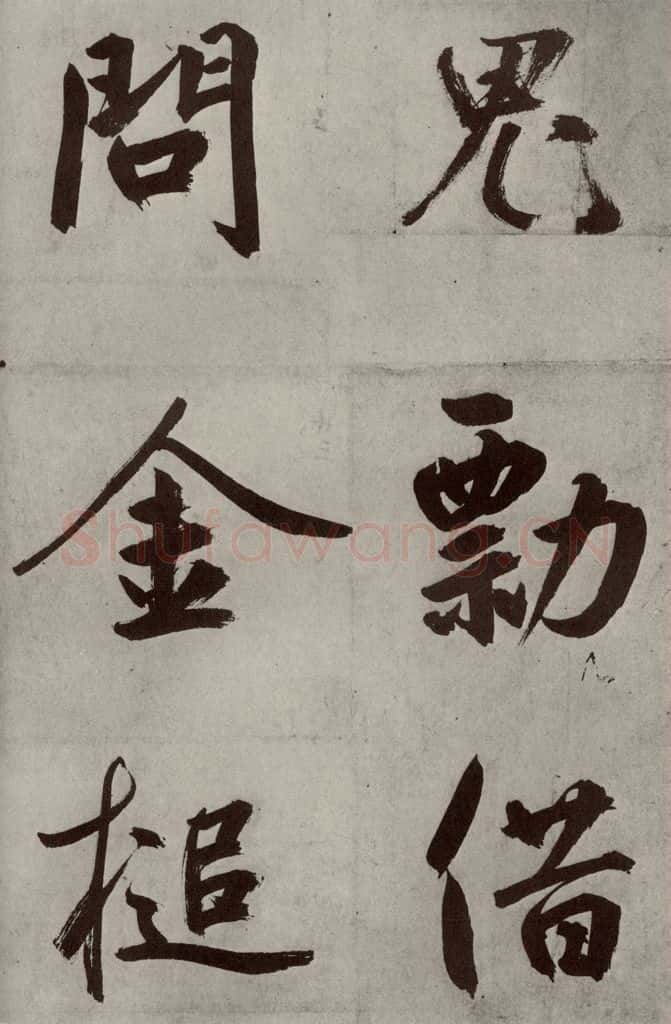 鬼勡借
問金槌
Shufawang.CN